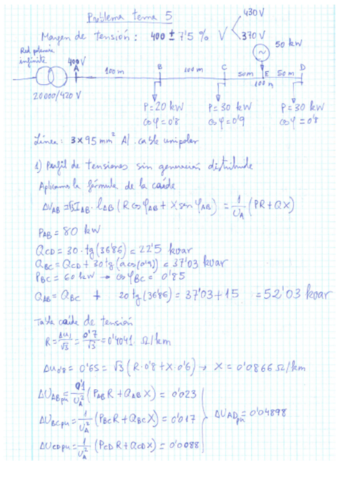 Problema tema 5
430 V
Margen de tensión: 400 ± 7'5 % V
370 V
50 kW
Red potencia
infinita
400 V
A
B
C
E
D
100m
100 m
50 m
50 m
100 m
20000/420 V
P=20 kW
P=30 kW
P=30 kW
cosφ=0'8
cosφ=0'9
cosφ=0'8
Línea: 3x95 mm² Al cable unipolar
1) Perfil de tensiones sin generación distribuida
Aplicamos la fórmula de la caída
ΔU_AB = √3 I_AB · l_AB (R cosφ_AB + X senφ_AB) = 1/U_A (PR+QX)
P_AB = 80 kW
Q_CD = 30 · tg(36'86) = 22'5 kvar
Q_BC = Q_CD + 30 tg(acos(0'9)) = 37'03 kvar
P_BC = 60 kW → cosφ_BC = 0'85
Q_AB = Q_BC + 20 tg(36'86) = 37'03 + 15 = 52'03 kvar
Tabla caída de tensión
R = ΔU1/√3 = 0'7/√3 = 0'4041 Ω/km
ΔU0'8 = 0'65 = √3 (R·0'8 + X·0'6) → X = 0'0866 Ω/km
ΔU_ABpu = 0'1/U_A² (P_AB R + Q_AB X) = 0'023
ΔU_BCpu = 1/U_A² (P_BC R + Q_BC X) = 0'017
ΔU_ADpu = 0'04898
ΔU_CDpu = 1/U_A² (P_CD R + Q_CD X) = 0'0088